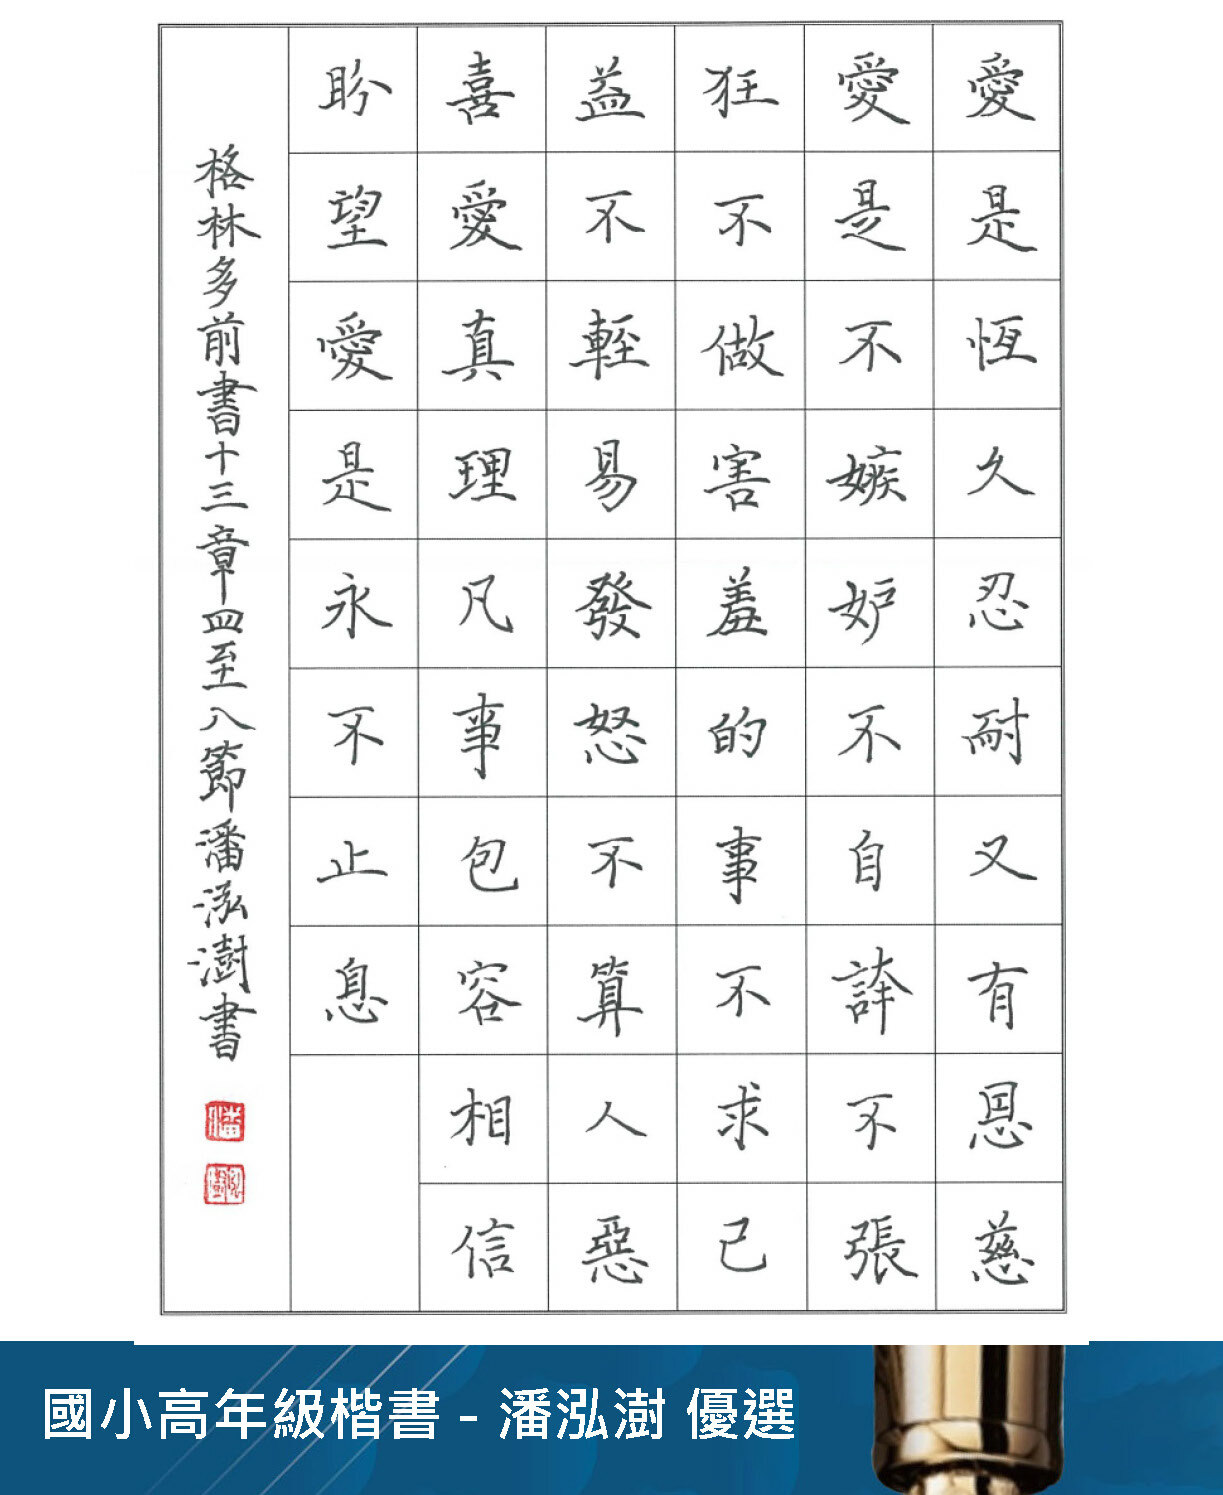 愛是恆久忍耐又有恩慈
愛是不嫉妒不自誇不張
狂不做害羞的事不求己
益不輕易發怒不算人惡
喜愛真理凡事包容相信
盼望愛是永不止息
格林多前書十三章四至八節潘泓澍書
潘
泓澍
國小高年級楷書 - 潘泓澍 優選